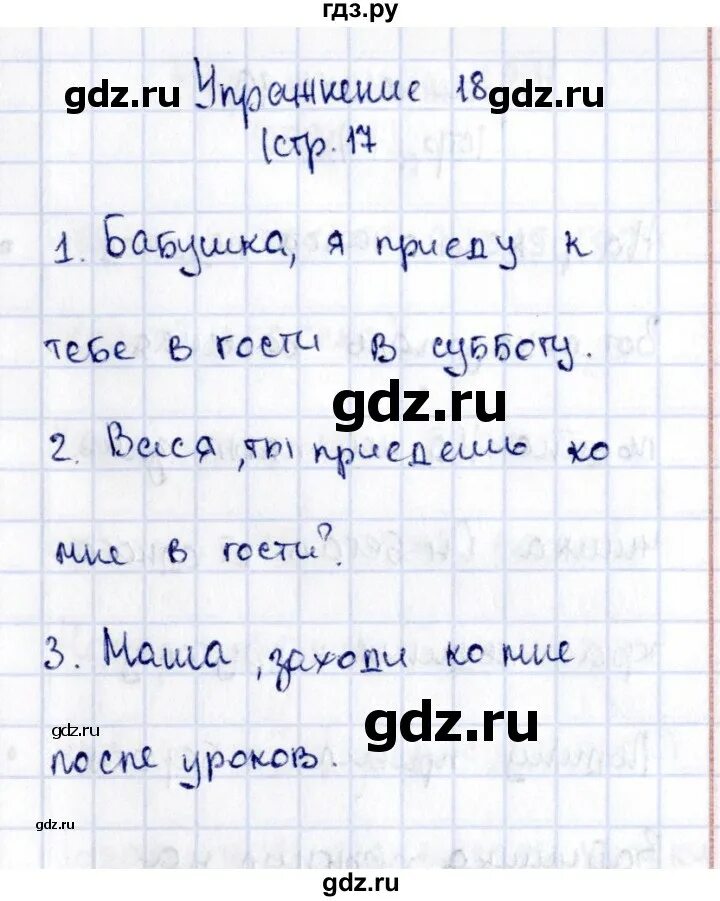 гдз.ру
gdz.ru Упражнение 18 gdz.ru
стр. 17
1. Бабушка, я приеду к
тебе в гости в субботу.
gdz.ru
2. Вася, ты приедешь ко
мне в гости?
3. Маша, заходи ко мне
gdz.ru gdz.ru
после уроков.
gdz.ru
gdz.ru